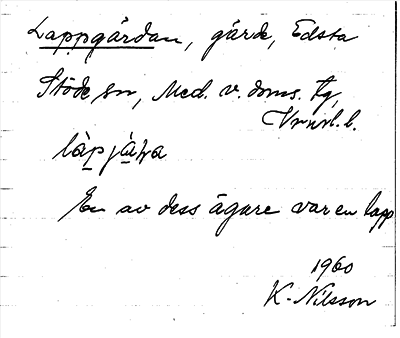 Lappgärdan, gärde, Edsta
Stöde sn, Med. v. doms. tg,
làpjä̀ɽa
En av dess ägare var en lapp
1960
K. Nilsson